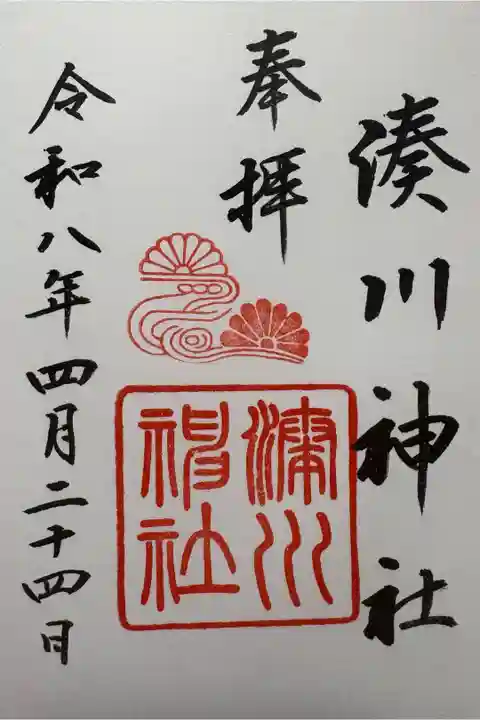 湊川神社
奉拝
湊川神社
令和八年四月二十四日